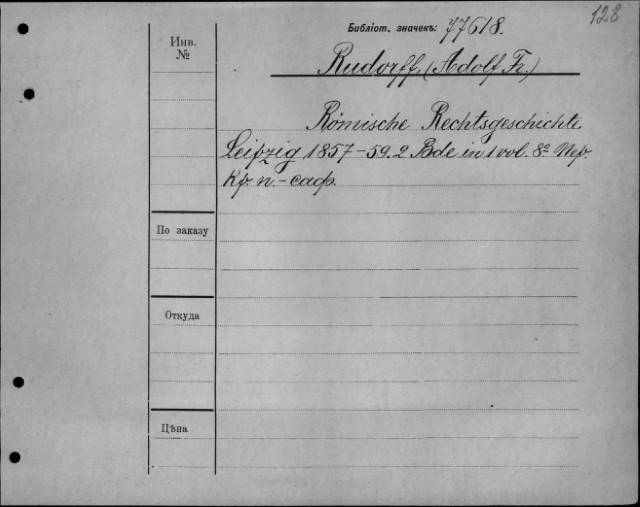 128
Библіот. значекъ: 77618.
Инв.
№
Rudorff, (Adolf Fr.)
Römische Rechtsgeschichte
Leipzig 1857-59. 2 Bde in 1 vol. 8º
п.-саф.
По заказу
Откуда
Цѣна